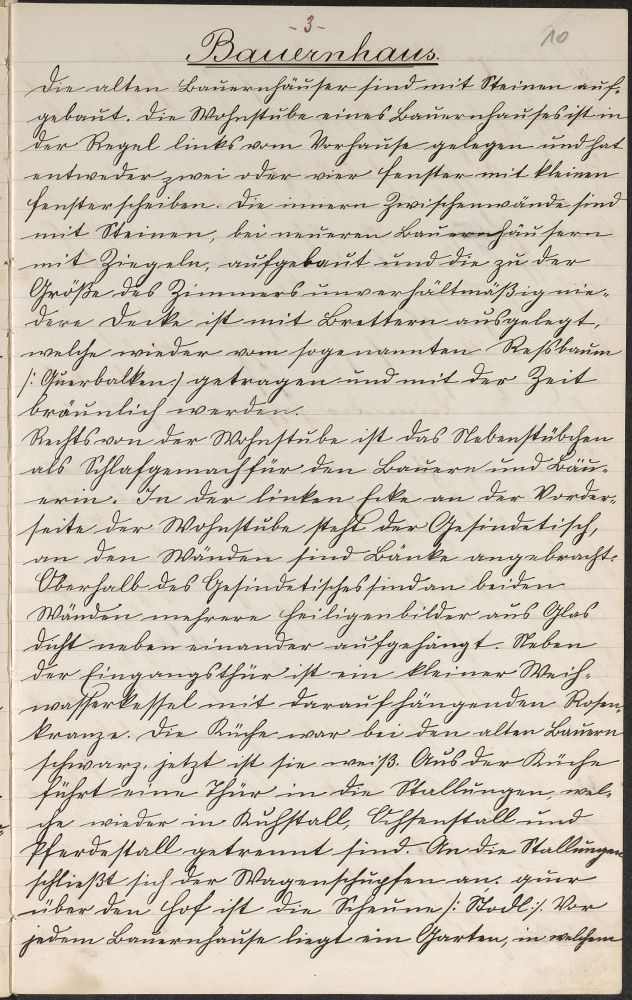 - 3 -
10
Bauernhaus.
Die alten Bauernhäuser sind mit Steinen auf-
gebaut. Die Wohnstube eines Bauernhauses ist in
der Regel links vom Vorhause gelegen und hat
entweder zwei oder vier Fenster mit kleinen
Fensterscheiben. Die innern Zwischenwände sind
mit Steinen, bei neueren Bauernhäusern
mit Ziegeln, aufgebaut und die zu der
Größe des Zimmers unverhältmäßig nie-
dere Decke ist mit Brettern ausgelegt,
welche wieder vom sogenannten Reßbaum
/: Querbalken :/ getragen und mit der Zeit
bräunlich werden.
Rechts von der Wohnstube ist das Nebenstübchen
als Schlafgemach für den Bauern und Bäu-
erin. In der linken Ecke an der Vorder-
seite der Wohnstube steht der Gesindetisch,
an den Wänden sind Bänke angebracht.
Oberhalb des Gesindetisches sind an beiden
Wänden mehrere Heiligenbilder aus Glas
dicht neben einander aufgehängt. Neben
der Eingangsthür ist ein kleiner Weih-
wasserkessel mit darauf hängenden Rosen-
kranze. Die Küche war bei den alten Bauern
schwarz, jetzt ist sie weiß. Aus der Küche
führt eine Thür in die Stallungen, wel-
che wieder in Kuhstall, Ochsenstall und
Pferdestall getrennt sind. An die Stallungen
schließt sich der Wagenschupfen an. quer
über den Hof ist die Scheune /: Stodl :/. Vor
jedem Bauernhause liegt ein Garten, in welchem